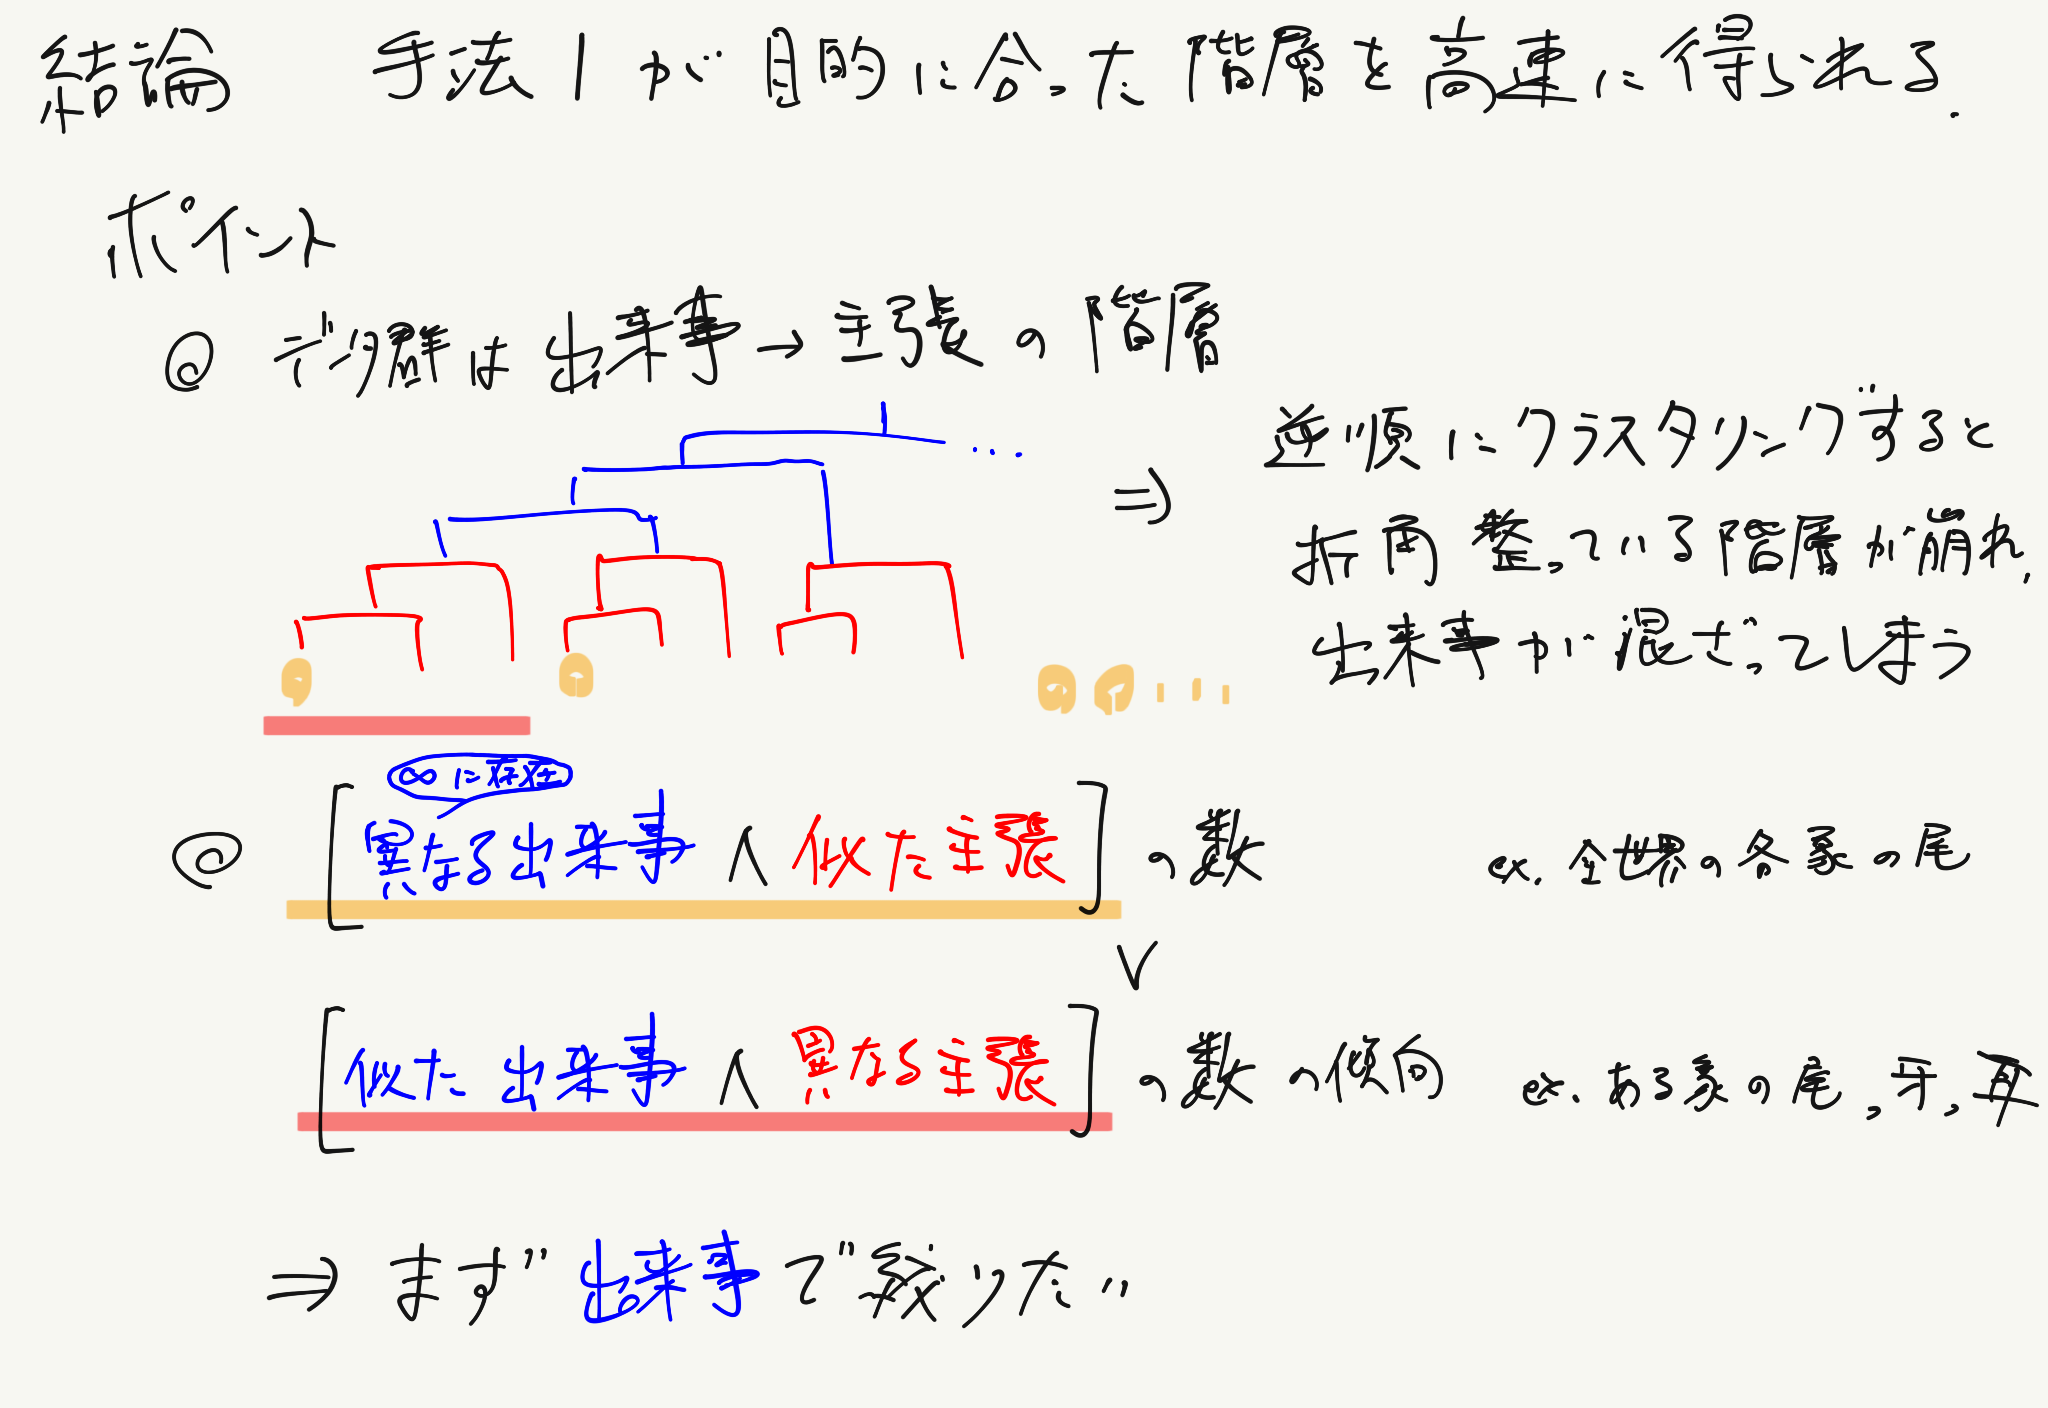 結論 手法1が目的に合った階層を高速に得られる.
ポイント
◎ データ群は出来事→主張の階層
⇒ 逆順にクラスタリングすると
折角整っている階層が崩れ,
出来事が混ざってしまう
∞に存在
◎ [異なる出来事 ∧ 似た主張]の数 ex. 全世界の各家の尾
∨
[似た出来事 ∧ 異なる主張]の数の傾向 ex. ある家の尾,牙,耳
⇒ まず出来事で絞りたい